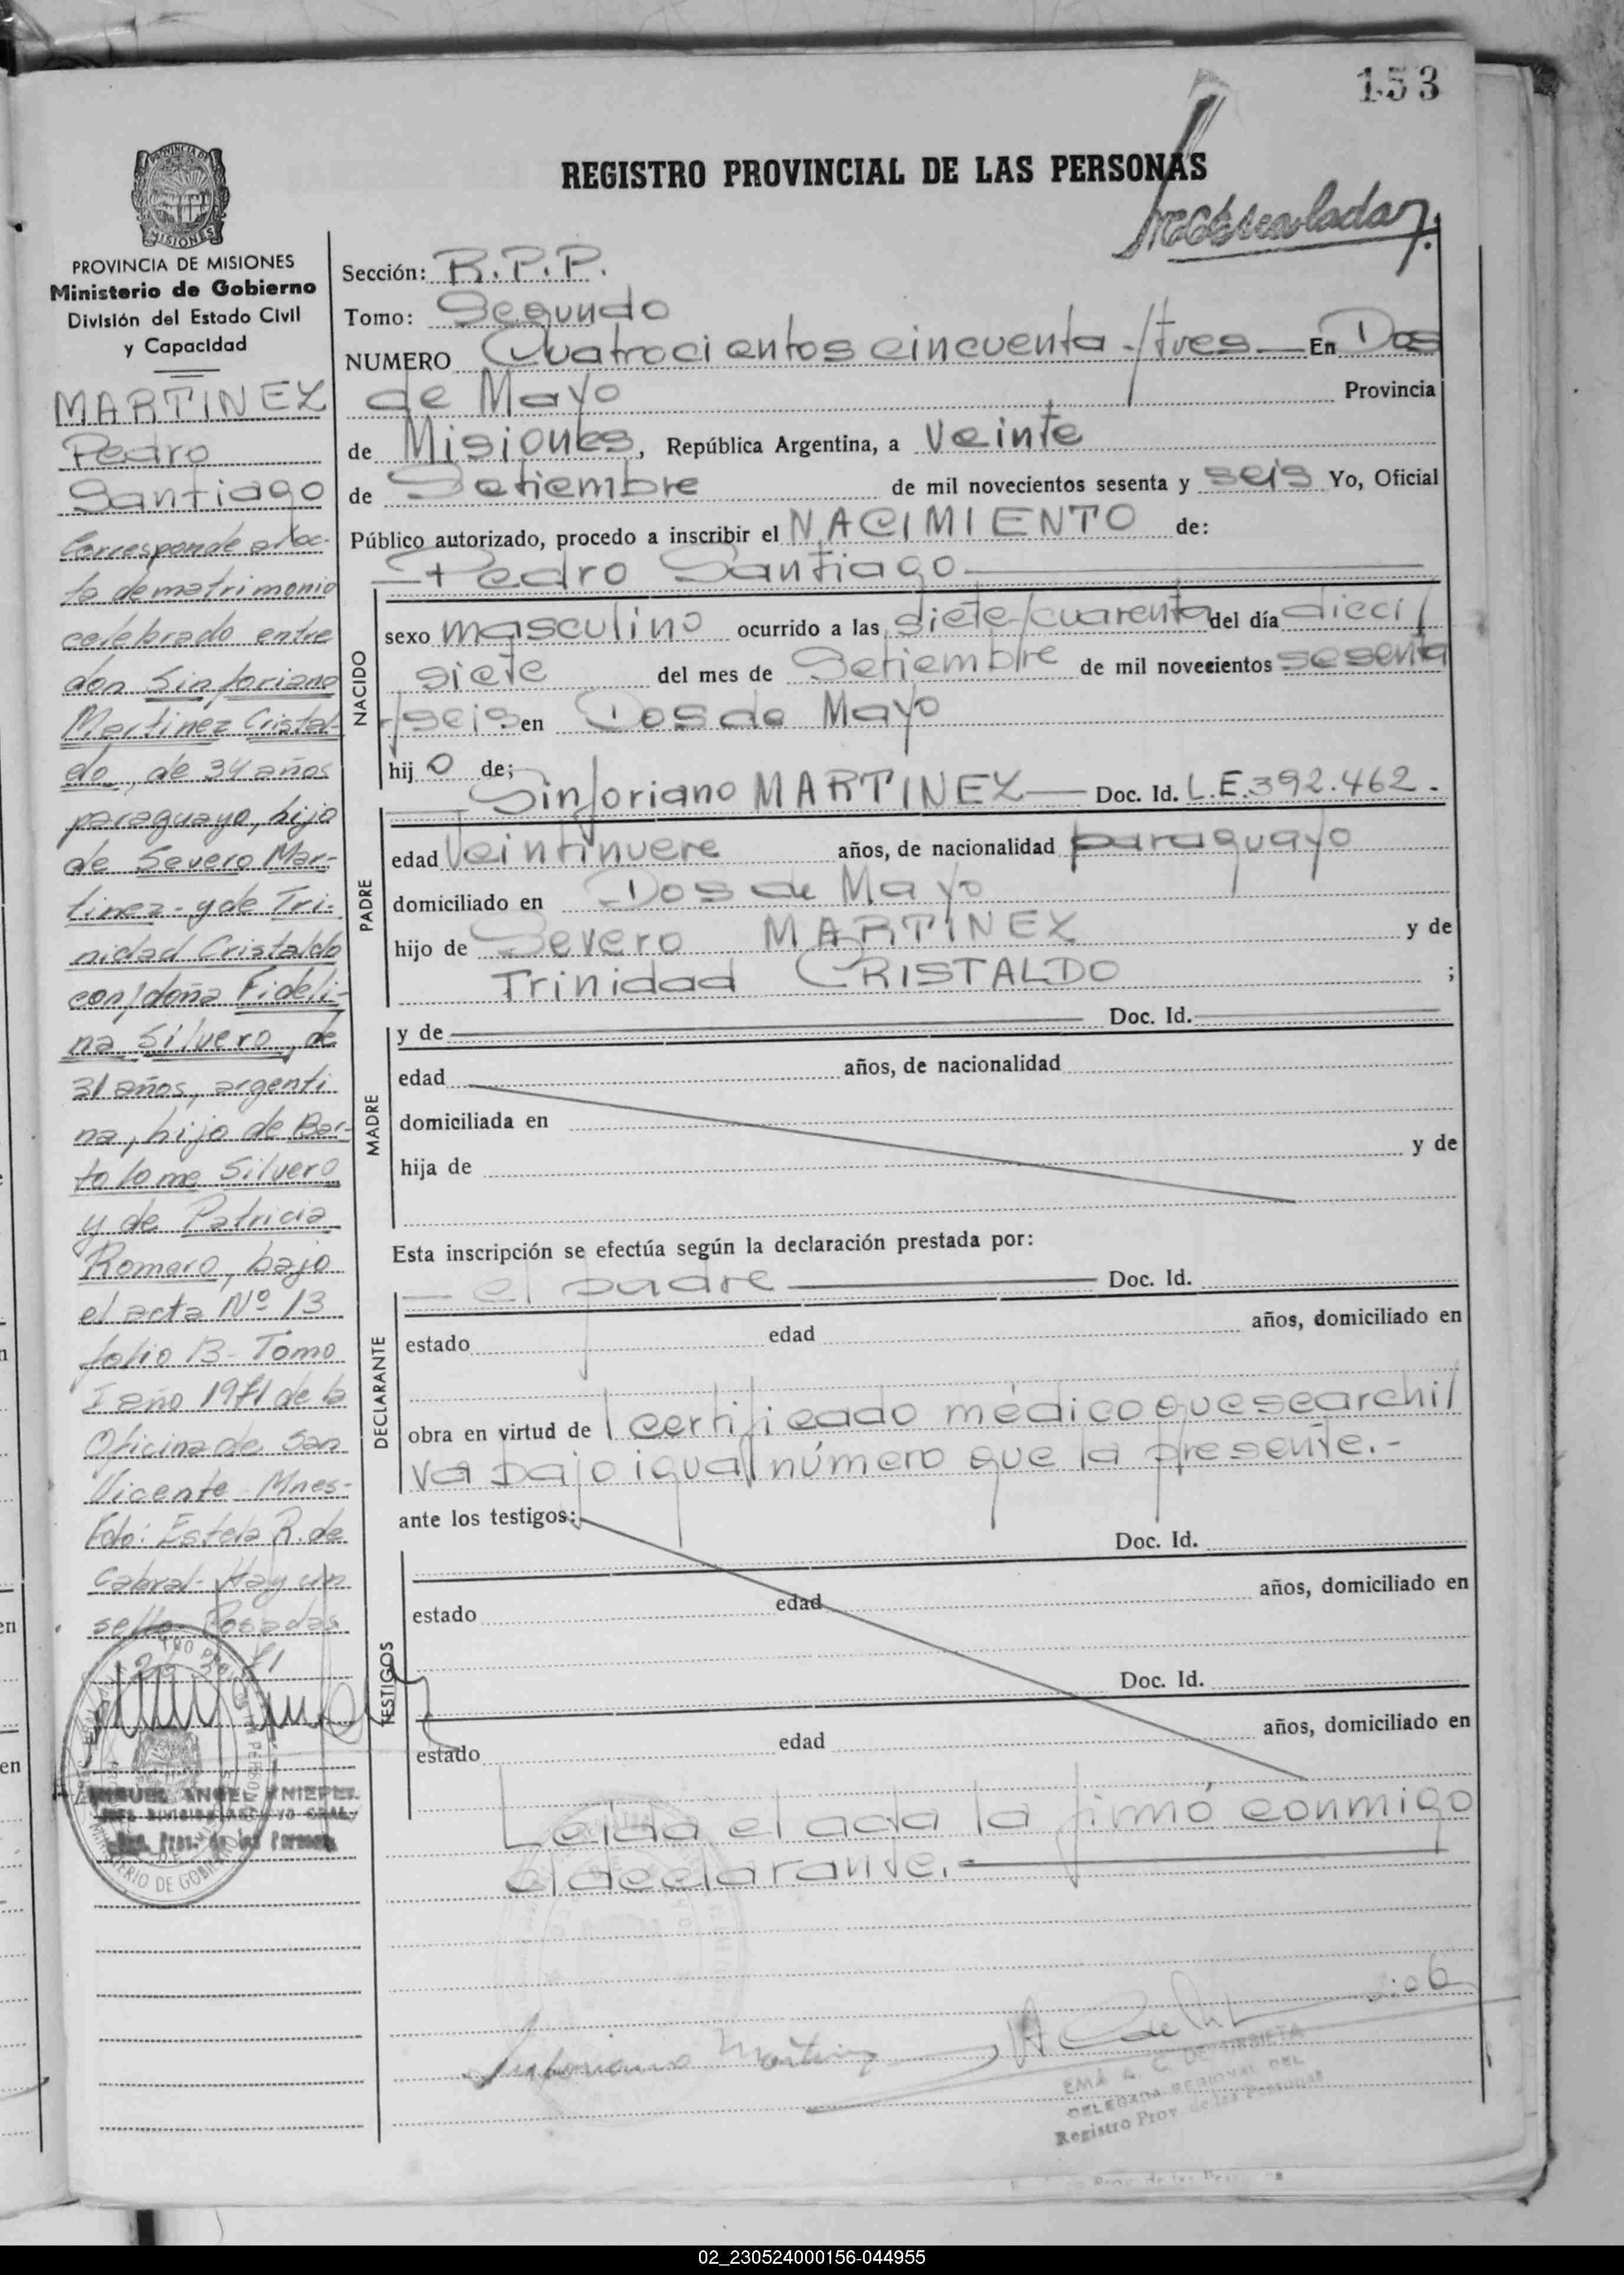 153
REGISTRO PROVINCIAL DE LAS PERSONAS
MISIONES
PROVINCIA DE MISIONES
Ministerio de Gobierno
División del Estado Civil
y Capacidad
MARTINEZ
Pedro
Santiago
Corresponde a/ac-
ta de matrimonio
celebrado entre
don Sinforiano
Martinez Cristal-
do, de 34 años
paraguayo, hijo
de Severo Mar-
tinez - y de Tri-
nidad Cristaldo
con/doña Fideli-
na Silvero, de
31 años, argenti
na, hijo de Bar-
tolome Silvero
y de Patricia
Romero, bajo
el acta Nº 13
folio 13 - Tomo
I año 1971 de la
Oficina de San
Vicente - Mnes-
Fdo: Estela R. de
Cabral - Hay un
sello Posadas
MIGUEL ANGEL KNIEPER
JEFE DIVISION ARCHIVO GRAL.
Reg. Prov. de las Personas
MINISTERIO DE GOBIERNO
Sección: R.P.P.
Tomo: Segundo
NUMERO Cuatrocientos cincuenta /tres En Dos
de Mayo Provincia
de Misiones, República Argentina, a Veinte
de Setiembre de mil novecientos sesenta y seis Yo, Oficial
Público autorizado, procedo a inscribir el NACIMIENTO de:
Pedro Santiago
NACIDO
sexo masculino ocurrido a las siete/cuarenta del día dieci/
siete del mes de Setiembre de mil novecientos sesenta
/seis en Dos de Mayo
hij o de;
Sinforiano MARTINEZ Doc. Id. L.E.392.462.
PADRE
edad Veintinueve años, de nacionalidad paraguayo
domiciliado en Dos de Mayo
hijo de Severo MARTINEZ y de
Trinidad CRISTALDO ;
y de Doc. Id.
MADRE
edad años, de nacionalidad
domiciliada en
hija de y de
Esta inscripción se efectúa según la declaración prestada por:
el padre Doc. Id.
DECLARANTE
estado edad años, domiciliado en
obra en virtud de l certificado médico que se archi/
va bajo igual número que la presente.-
ante los testigos:
Doc. Id.
TESTIGOS
estado edad años, domiciliado en
Doc. Id.
estado edad años, domiciliado en
Leida el acta la firmó conmigo
el declarante.-
Sinforiano Martinez
EMA A. C. DE URBIETA
DELEGADA REGIONAL DEL
Registro Prov. de las Personas
02_230524000156-044955